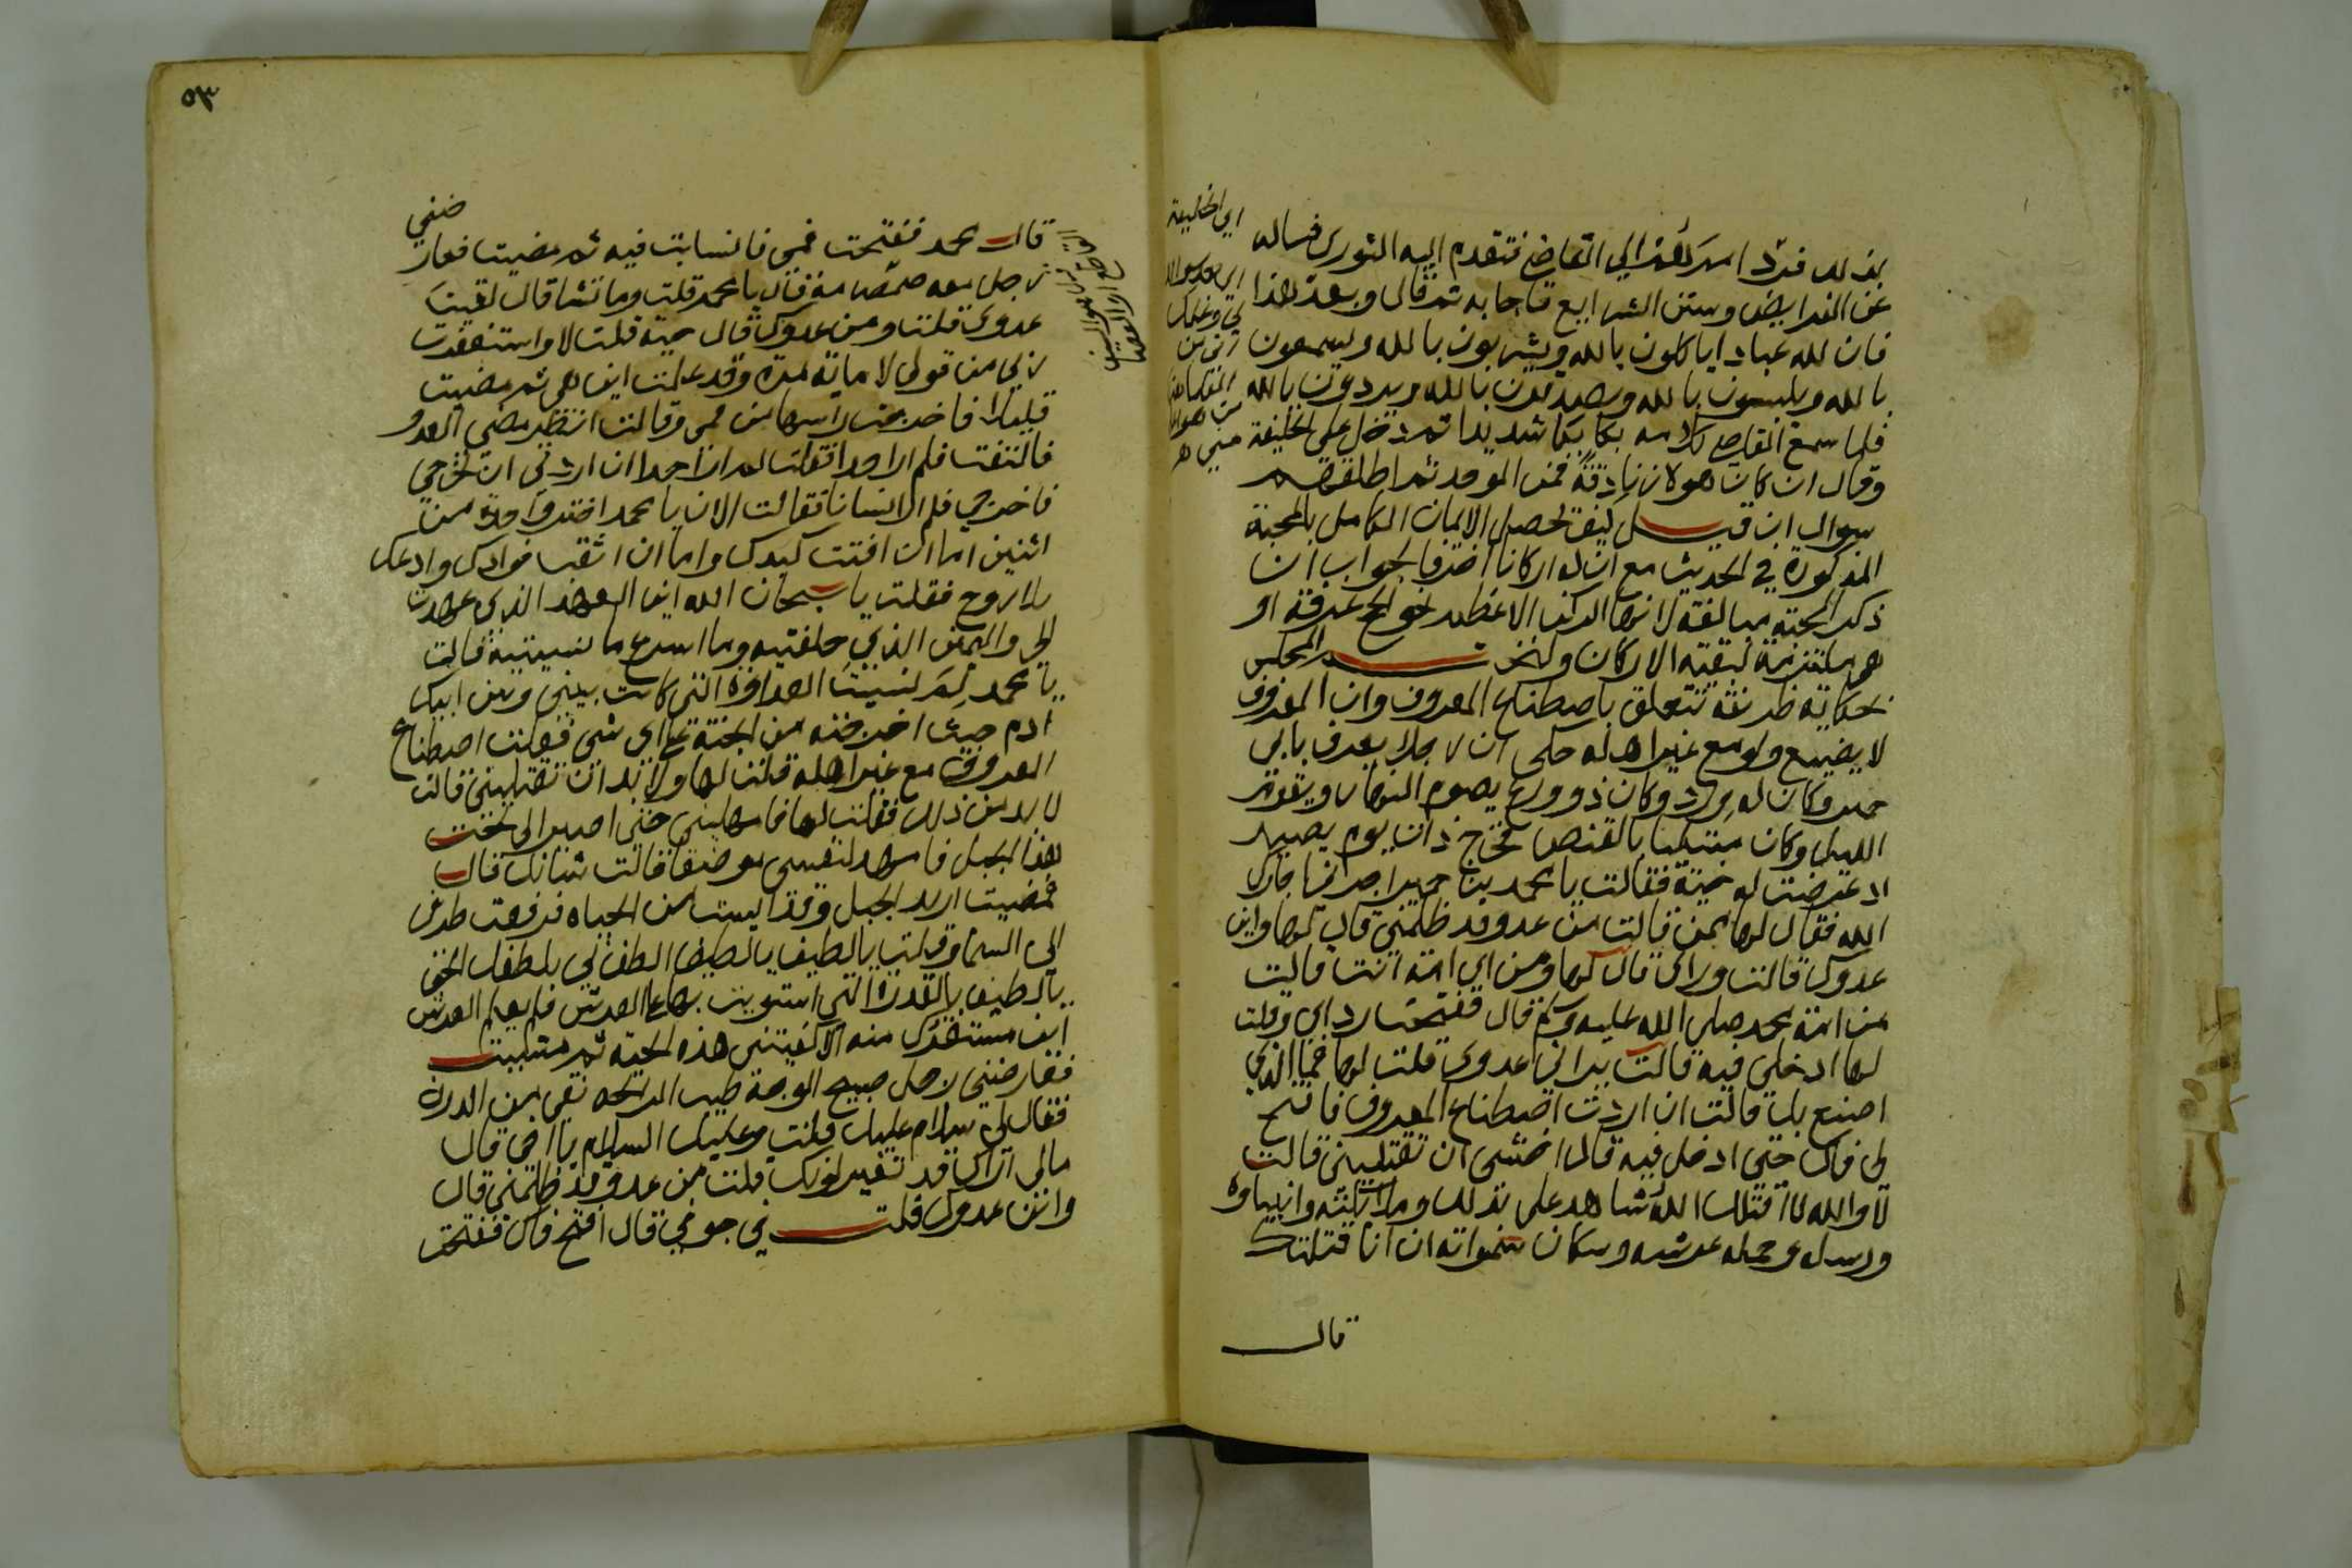 بذلك فرد امرهم الي القاضي فتقدم اليه النوري فساله
عن الفرايض وسنن الشرايع فاجابه ثم قال وبعد هذا
فان لله عبادا ياكلون بالله ويشربون بالله ويسمعون
بالله ويلبسون بالله ويصدرون بالله ويردون بالله
فلما سمع القاضي كلامه بكا بكا شديدا ثم دخل علي الخليفة
وقال ان كان هولا زنادقة فمن الموحد ثم اطلقهم
سوال ان قيل كيف يحصل الايمان الكامل بالمحبة
المذكورة في الحديث مع ان له اركانا اخر فالجواب ان
ذكر المحبة مبالغة لانها الركن الاعظم نحو الحج عرفة او
هي مستلزمة لبقية الاركان ولنختم المجلس
بحكاية ظريفة تتعلق باصطناع المعروف وان المعروف
لا يضيع ولو مع غير اهله حكي ان رجلا يعرف بابن
حمير وكان له ورد وكان ذو ورع يصوم النهار ويقوم
الليل وكان مبتليا بالقنص فخرج ذات يوم يصيد
اذ عرضت له حية فقالت يا محمد بن حمير اجرني اجارك
الله فقال لها ممن قالت من عدو قد ظلمني قال لها واين
عدوك قالت وراي قال لها ومن اي امة انت قالت
من امة محمد صلي الله عليه وسلم قال ففتحت رداي وقلت
لها ادخلي فيه قالت يراني عدوي قلت لها فما الذي
اصنع بك قالت ان اردت اصطناع المعروف فافتح
لي فاك حتي ادخل فيه قال اخشي ان تقتليني قالت
لا والله لا اقتلك الله شاهد علي بذلك وملائكته وانبياوه
ورسله وحملة عرشه وسكان سمواته ان انا قتلتك
قال
اي الخليفة
٥٣
قال محمد ففتحت فمي فانسابت فيه ثم مضيت فعارضني
رجل معه صمصامة فقال يا محمد قلت وما تشا قال لقيت
عدوي قلت ومن عدوك قال حية قلت لا واستغفرت
ربي من قولي لا ماية مرة وقد علمت اين هي ثم مضيت
قليلا فاخرجت راسها من فمي وقالت انظر مضي العدو
فالتفت فلم ار احدا فقلت لم ار احدا ان اردتي ان تخرجي
فاخرجي فلم ار انسانا فقالت الان يا محمد اختر واحدة من
اثنين اما ان افتت كبدك واما ان اثقب فوادك وادعك
بلا روح فقلت يا سبحان الله اين العهد الذي عهدت
الي واليمين الذي حلفتيه وما اسرع ما نسيتيه قالت
يا محمد لم نسيت العداوة التي كانت بيني وبين ابيك
ادم حيث اخرجته من الجنة علي اي شي فعلت اصطناع
المعروف مع غير اهله قلت لها ولا بد ان تقتليني قالت
لا بد من ذلك فقلت لها فامهليني حتي اصير الي تحت
هذا الجبل فامهد لنفسي موضعا قالت شانك قال
فمضيت اريد الجبل وقد ايست من الحياه فرفعت طرفي
الي السما وقلت يا لطيف يا لطيف الطف بي بلطفك الخفي
يا لطيف بالقدرة التي استويت بها علي العرش فلم يعلم العرش
اين مستقرك منه الا كفيتني هذه الحية ثم مشيت
فعارضني رجل صبيح الوجه طيب الرائحه نقي من الدرن
فقال لي سلام عليك فقلت وعليك السلام يا اخي قال
مالي اراك قد تغير لونك قلت من عدو قد ظلمني قال
واين عدوك قلت في جوفي قال افتح فاك ففتحت